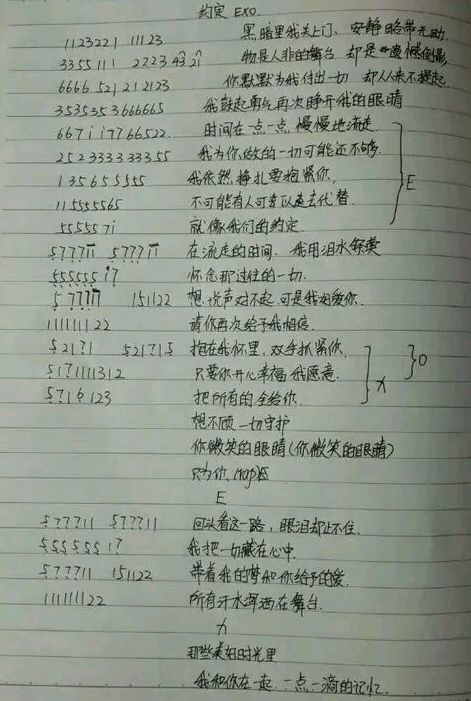 约定 EXO
1123221 11123 黑暗里我关上门、安静略带无助
3355111 2223 43 21 物是人非的舞台 却是一度倾倒
6666 521 212123 你默默为我付出一切 却从来不提起
3535353666665 我鼓起勇气再次睁开我的眼睛
667ii7766522 时间在一点一点 慢慢地流走
2523333333355 我为你做的一切可能还不够
135655555 我依然挣扎要抱紧你,
115555565 不可能有人可以来去代替 E
555557i 就像我们的约定
577711 577711 在流走的时间、我用泪水
55555517 怀念那过往的一切.
577711 151122 想说声对不起 可是我好爱你.
111111122 请你再次给予我相信
52171 521715 抱在我怀里, 双手抓紧你,
5171111312 只要你开心幸福 我愿意. O
5716123 把所有的全给你. X
想不顾一切守护
你微笑的眼睛(你微笑的眼睛)
只为你 (rap)
E
577711 577711 回头看这一路, 眼泪却止不住.
55555517 我把一切藏在心中.
577711 151122 带着我的梦和你给予的爱.
1111111122 所有汗水挥洒在舞台.
X
那些美好时光里
我和你在一起 一点一滴的记忆.